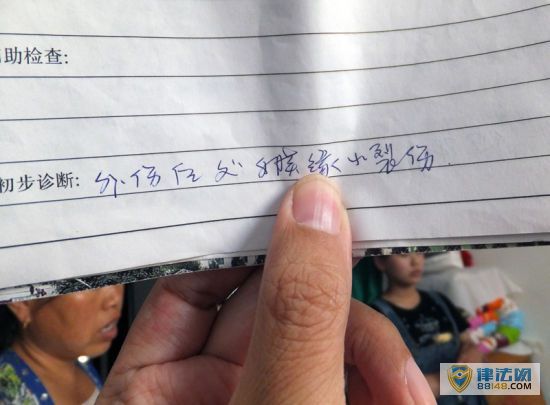 辅助检查:
初步诊断: 外伤后处女膜缘小裂伤.
律法网
88148.COM